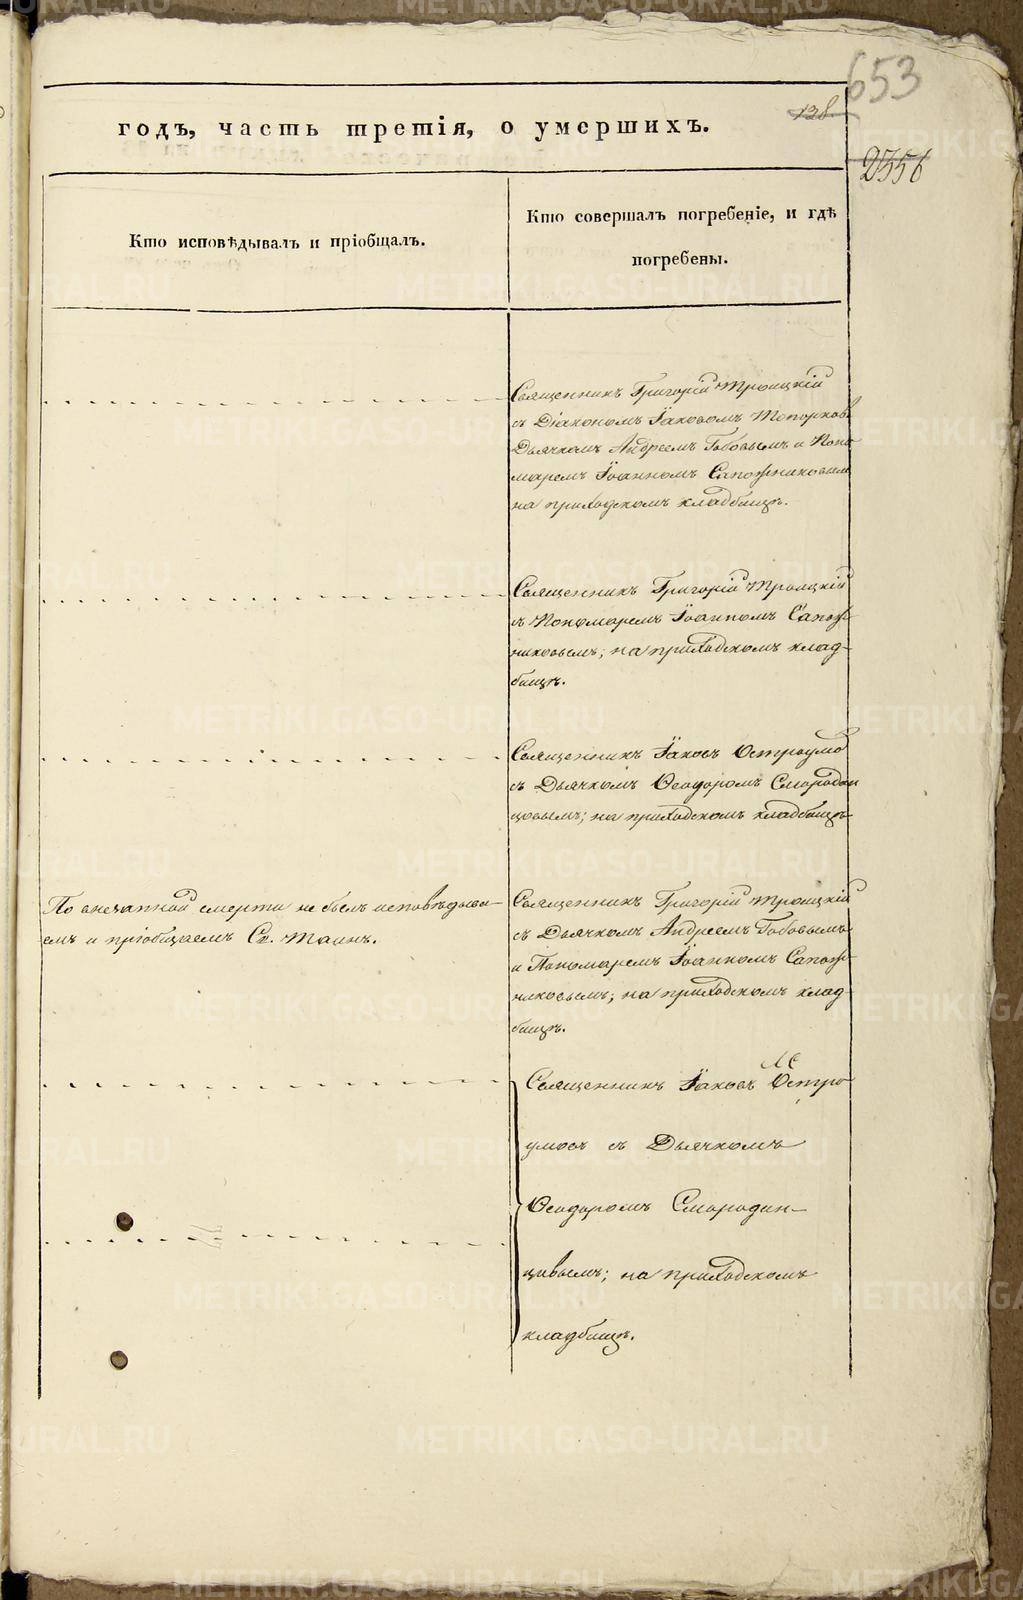 653
138.
годъ, часть третія, о умершихъ.
2556
Кто исповѣдывалъ и пріобщалъ.
Кто совершалъ погребеніе, и гдѣ
погребены.
Священникъ Григорій Троицкій
съ Діакономъ Іаковомъ Топорков.
Дьячкомъ Андреемъ Бобовымъ и Поно
маремъ Іоанномъ Сапожниковым
на приходскомъ кладбищѣ.
Священникъ Григорій Троицкій
съ Пономаремъ Іоанномъ Сапож-
никовымъ; на приходскомъ клад-
бищѣ.
Священникъ Іаковъ Остроумо
съ Дьячкомъ Ѳеодоромъ Смородин
цовымъ; на приходскомъ кладбищѣ
По внезапной смерти не былъ исповѣдыва-
емъ и пріобщаемъ Св. Таинъ.
Священникъ Григорій Троицкій
съ Дьячкомъ Андреемъ Бобовымъ
и Пономаремъ Іоанномъ Сапож-
никовымъ; на приходскомъ клад-
бищѣ.
Священникъ Іаковъ Остро
умовъ съ Дьячкомъ
Ѳеодоромъ Смородин-
цовымъ; на приходскомъ
кладбищѣ.
METRIKI.GASO-URAL.RU